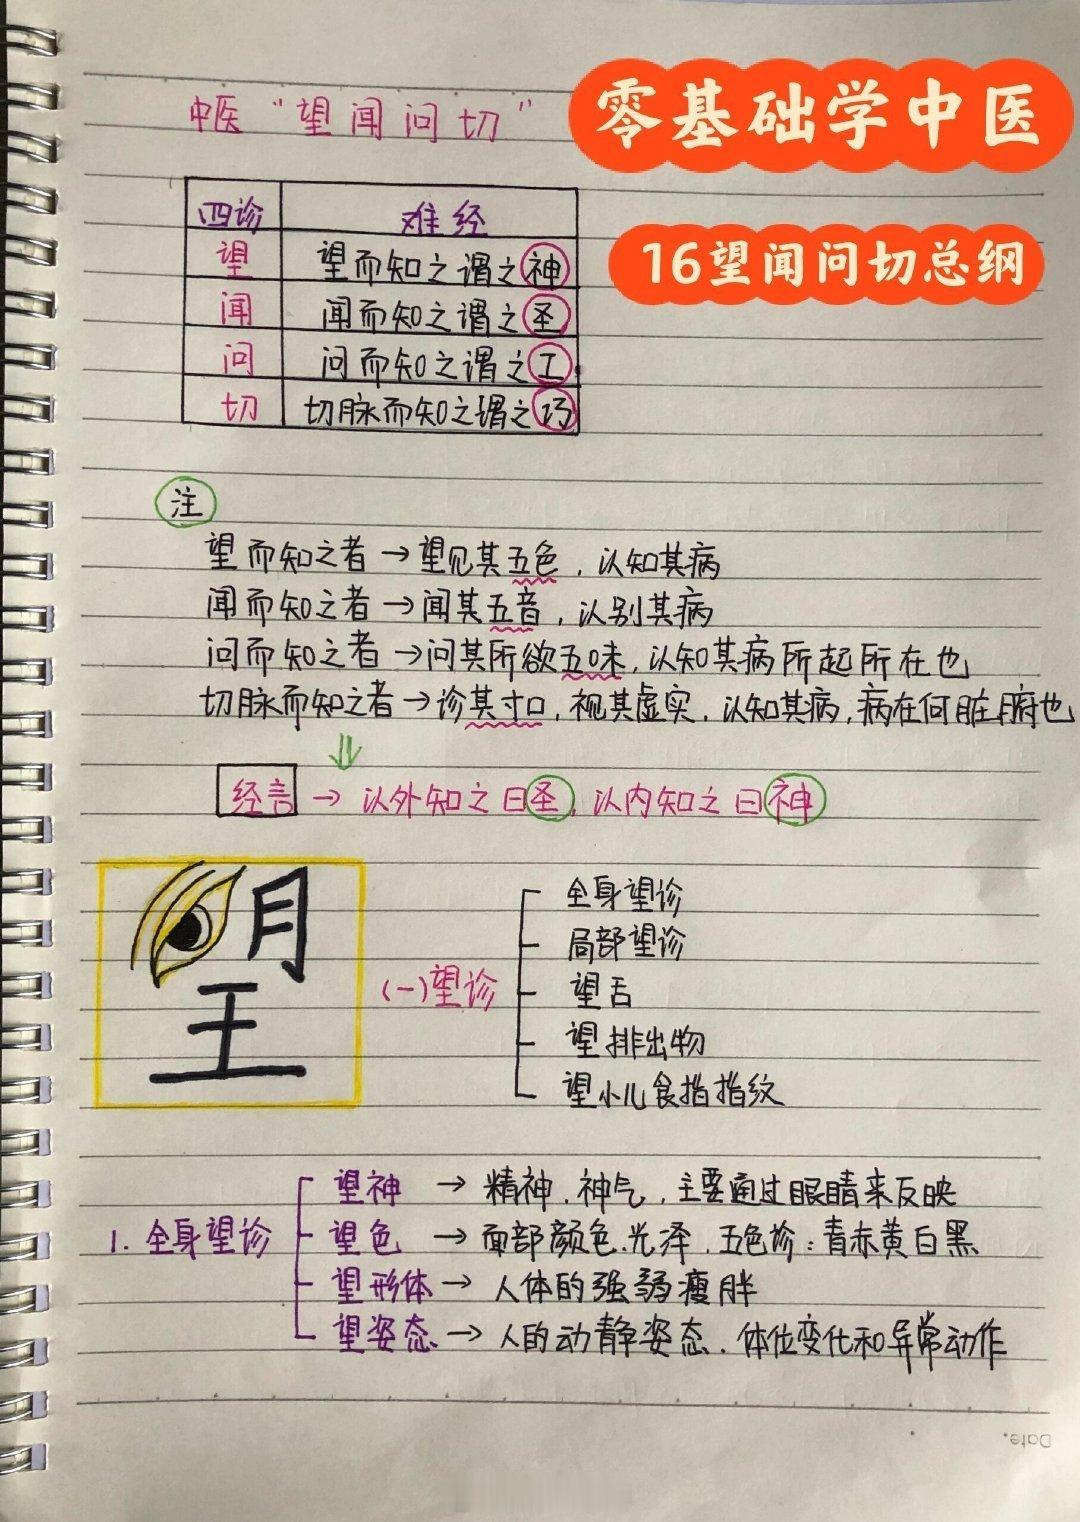 零基础学中医
16望闻问切总纲
中医“望闻问切”
四诊 难经
望 望而知之谓之神
闻 闻而知之谓之圣
问 问而知之谓之工
切 切脉而知之谓之巧
注
望而知之者→望见其五色，认知其病
闻而知之者→闻其五音，认别其病
问而知之者→问其所欲五味，认知其病所起所在也
切脉而知之者→诊其寸口，视其虚实，认知其病，病在何脏腑也
经言→以外知之曰圣，以内知之曰神
望
(一)望诊
全身望诊
局部望诊
望舌
望排出物
望小儿食指指纹
1. 全身望诊
望神→精神、神气，主要通过眼睛来反映
望色→面部颜色、光泽，五色诊：青赤黄白黑
望形体→人体的强弱瘦胖
望姿态→人的动静姿态、体位变化和异常动作
Date.